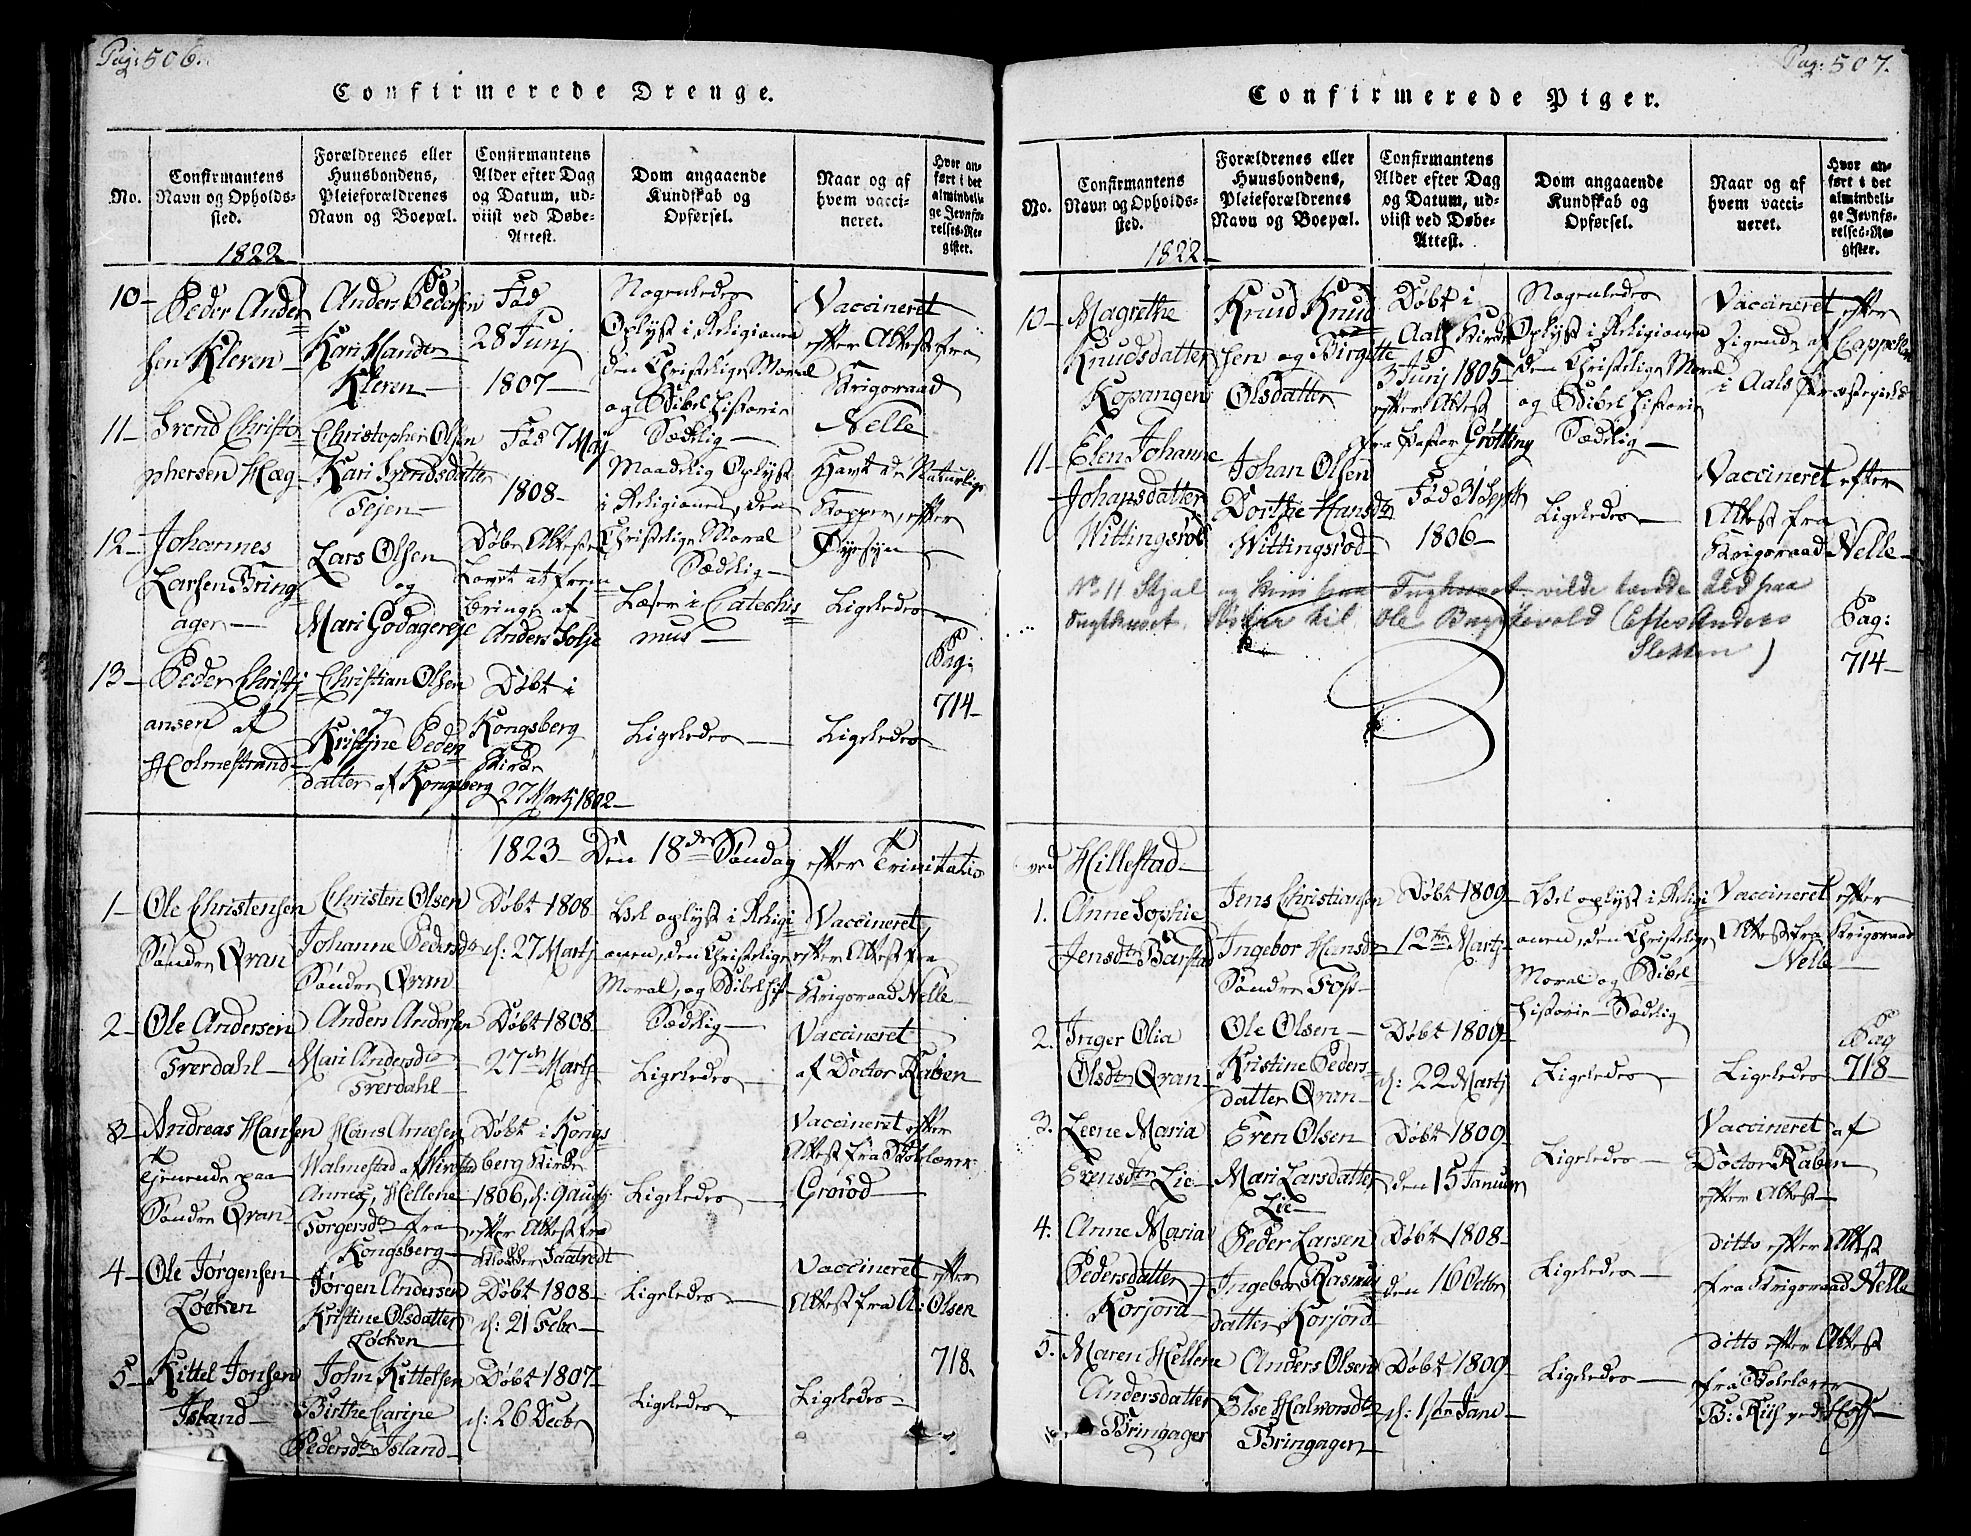 Pag: 506.
Confirmerede Drenge.
No.
Confirmantens
Navn og Opholds-
sted.
1822
Forældrenes eller
Huusbondens,
Pleieforældrenes
Navn og Boepæl.
Confirmantens
Alder efter Dag
og Datum, ud-
viist ved Døbe-
Attest.
Dom angaaende
Kundskab og
Opførsel.
Naar og af
hvem vacci-
neret.
Hvor an-
ført i det
almindeli-
ge Jevnfø-
relses-Re-
gister.
10-
Peder Ander
sen Kleren-
Anders Pedersen
Kari
Kleren-
Fød
28 Junj
1807-
Nogenledes
Oplyst i Religionen
den Christelige Moral
og Bibel historie
Sædelig-
Vaccineret
efter Attest fra
Krigsraad
Nelle
11-
Svend Christo
phersen Hæg-
Christopher Olsen
Kari Svendsdatter
Tejen-
Fød 7 Maj
1808-
Maadelig Oplyst
i Religionen, den
Christelige Moral
Sædelig-
Havt de Naturlige
Kopper, efter
Øyesyn
12-
Johannes
Larsen Bring
ager-
Lars Olsen
og
Mari Godager
Døbe Attesten
Lovet at frem
bringe af
Anders
Læser i Catechis
mus-
Ligeledes-
13-
Peder Christj
ansen af
Holmestrand-
Christian Olsen
og
Kristine Peders
datter af Kongsberg
Døbt i
Kongsberg
Kirke
27 Martj 1802-
Ligeledes-
Ligeledes-
Pag:
714-
1823- Den 18de Søndag efter Trinitatis
1-
Ole Christensen
Søndre Qvan
Christen Olsen
Johanne Pedersdr
Søndre Qvan
Døbt 1808
d: 27 Martj
Vel oplyst i Religi
onen, den Christelige
Moral, og Bibel hist-
Sædelig-
Vaccineret
efter Attest fra
Krigsraad Nelle-
2-
Ole Andersen
Frerdahl-
Anders Andersen
Mari Andersdr
Frerdahl
Døbt 1808-
27de Martj
Ligeledes
Vaccineret
af Doctor Raben
3-
Andreas Hansen
Tjenende paa
Søndre Qvan-
Hans Arnesen
Annes, Hellene
Torgersdr fra
Kongsberg-
Døbt i Kongs
berg Kirke
1806, d: 9 Augtj
efter Attest fra
Ligeledes
Vaccineret efter
Attest fra Skolelærer
Grorød-
4-
Ole Jørgensen
Løcken
Jørgen Andersen
Kristine Olsdatter
Løcken
Døbt 1808-
d: 21 Febr-
Ligeledes-
Vaccineret efter
Attest fra A: Olsen
5-
Kittel Jonsen
Island-
John Kittelsen
Birthe Carine
Pedersdr Island-
Døbt 1807-
d: 26 Decbr
Ligeledes-
Ligeledes-
718.
Pag: 507.
Confirmerede Piger.
No.
Confirmantens
Navn og Opholds-
sted.
1822-
Forældrenes eller
Huusbondens,
Pleieforældrenes
Navn og Boepæl.
Confirmantens
Alder efter Dag
og Datum, ud-
viist ved Døbe-
Attest.
Dom angaaende
Kundskab og
Opførsel.
Naar og af
hvem vacci-
neret.
Hvor an-
ført i det
almindeli-
ge Jevnfø-
relses-Re-
gister.
10-
Magrethe
Knudsdatter
Kopangen
Knud Knud
sen og Birgitte
Olsdatter
Døbt i
Aals Kirke
3 Junj 1805-
efter Attest
fra Paster Grøtting
Nogenledes
Oplyst i Religionen
den Christelige Moral
og Bibel historie
Sædelig-
Vaccineret efter
Sigende af Cappelen
i Aals Præstegield
11-
Elen Johanne
Johansdatter
Wittingsrød
Johan Olsen
Dorthe Hansdr
Wittingsrød
Fød 31 Septbr
1806-
Ligeledes-
Vaccineret efter
Attest fra
Krigsraad Nelle-
No 11 Stjal og kom paa Tugthuset vilde tænde Ild paa
Tugthuset. Søster til Ole Bugtevold (Efter Anders
)
Pag:
714-
ved Hillestad-
1.
Anne Sophie
Jensdtr Barstad
Jens Christiansen
Ingebor Hansdr
Søndre Fos-
Døbt 1809-
12te Martj-
Vel oplyst i Religi
onen, den Christelige
Moral og Bibel-
historie- Sædelig
Vaccineret efter
Attest fra Krigsraad
Nelle-
2.
Inger Olia
Olsdtr Qvan-
Ole Olsen-
Kristine Peders-
datter Qvan-
Døbt 1809-
d: 22 Martj
Ligeledes-
Ligeledes-
Pag
718-
3.
Leene Maria
Evensdtr Lie-
Even Olsen
Mari Larsdatter
Lie-
Døbt 1809-
den 15 Januar
Ligeledes-
Vaccineret af
Doctor Raben
efter Attest-
4.
Anne Maria
Pedersdatter
Korjord-
Peder Larsen
Ingebor Rasmus
datter Korjord
Døbt 1808-
den 16 Octbr
Ligeledes-
ditto efter Attest
fra Krigsraad Nelle
5.
Maren Hellene
Andersdatter
Bringager
Anders Olsen
Else Halvorsdr
Bringager
Døbt 1809-
d: 1ste Jane
Ligeledes-
ditto efter Attest
fra Skolelærer